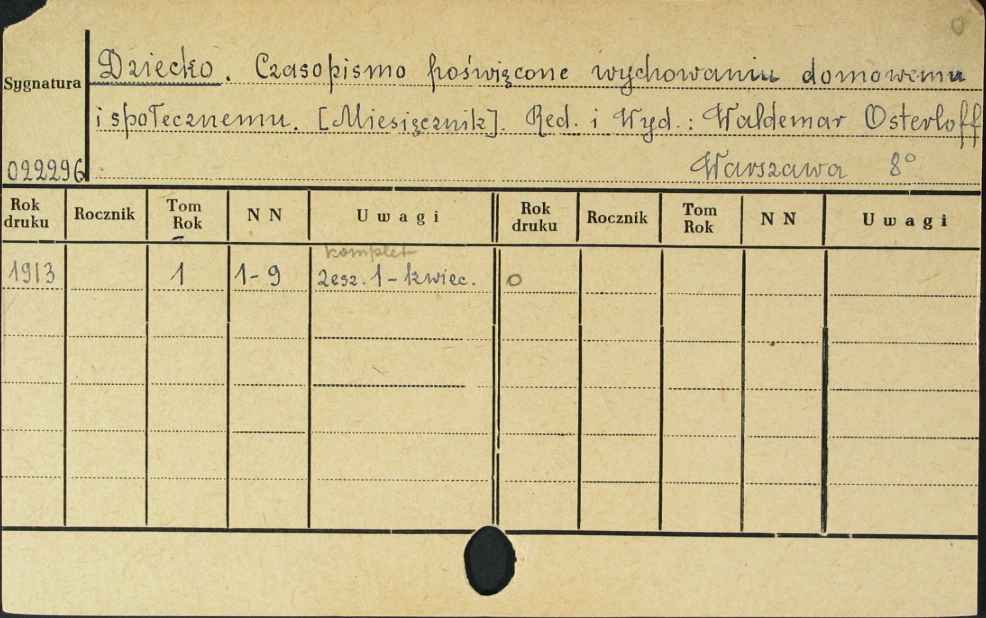 Sygnatura
Dziecko. Czasopismo poświęcone wychowaniu domowemu
i społecznemu. [Miesięcznik]. Red. i Wyd.: Waldemar Osterloff
022296
Warszawa 8°
Rok druku Rocznik Tom Rok N N Uwagi Rok druku Rocznik Tom Rok N N Uwagi
komplet
1913 1 1-9 zesz. 1 - kwiec. O